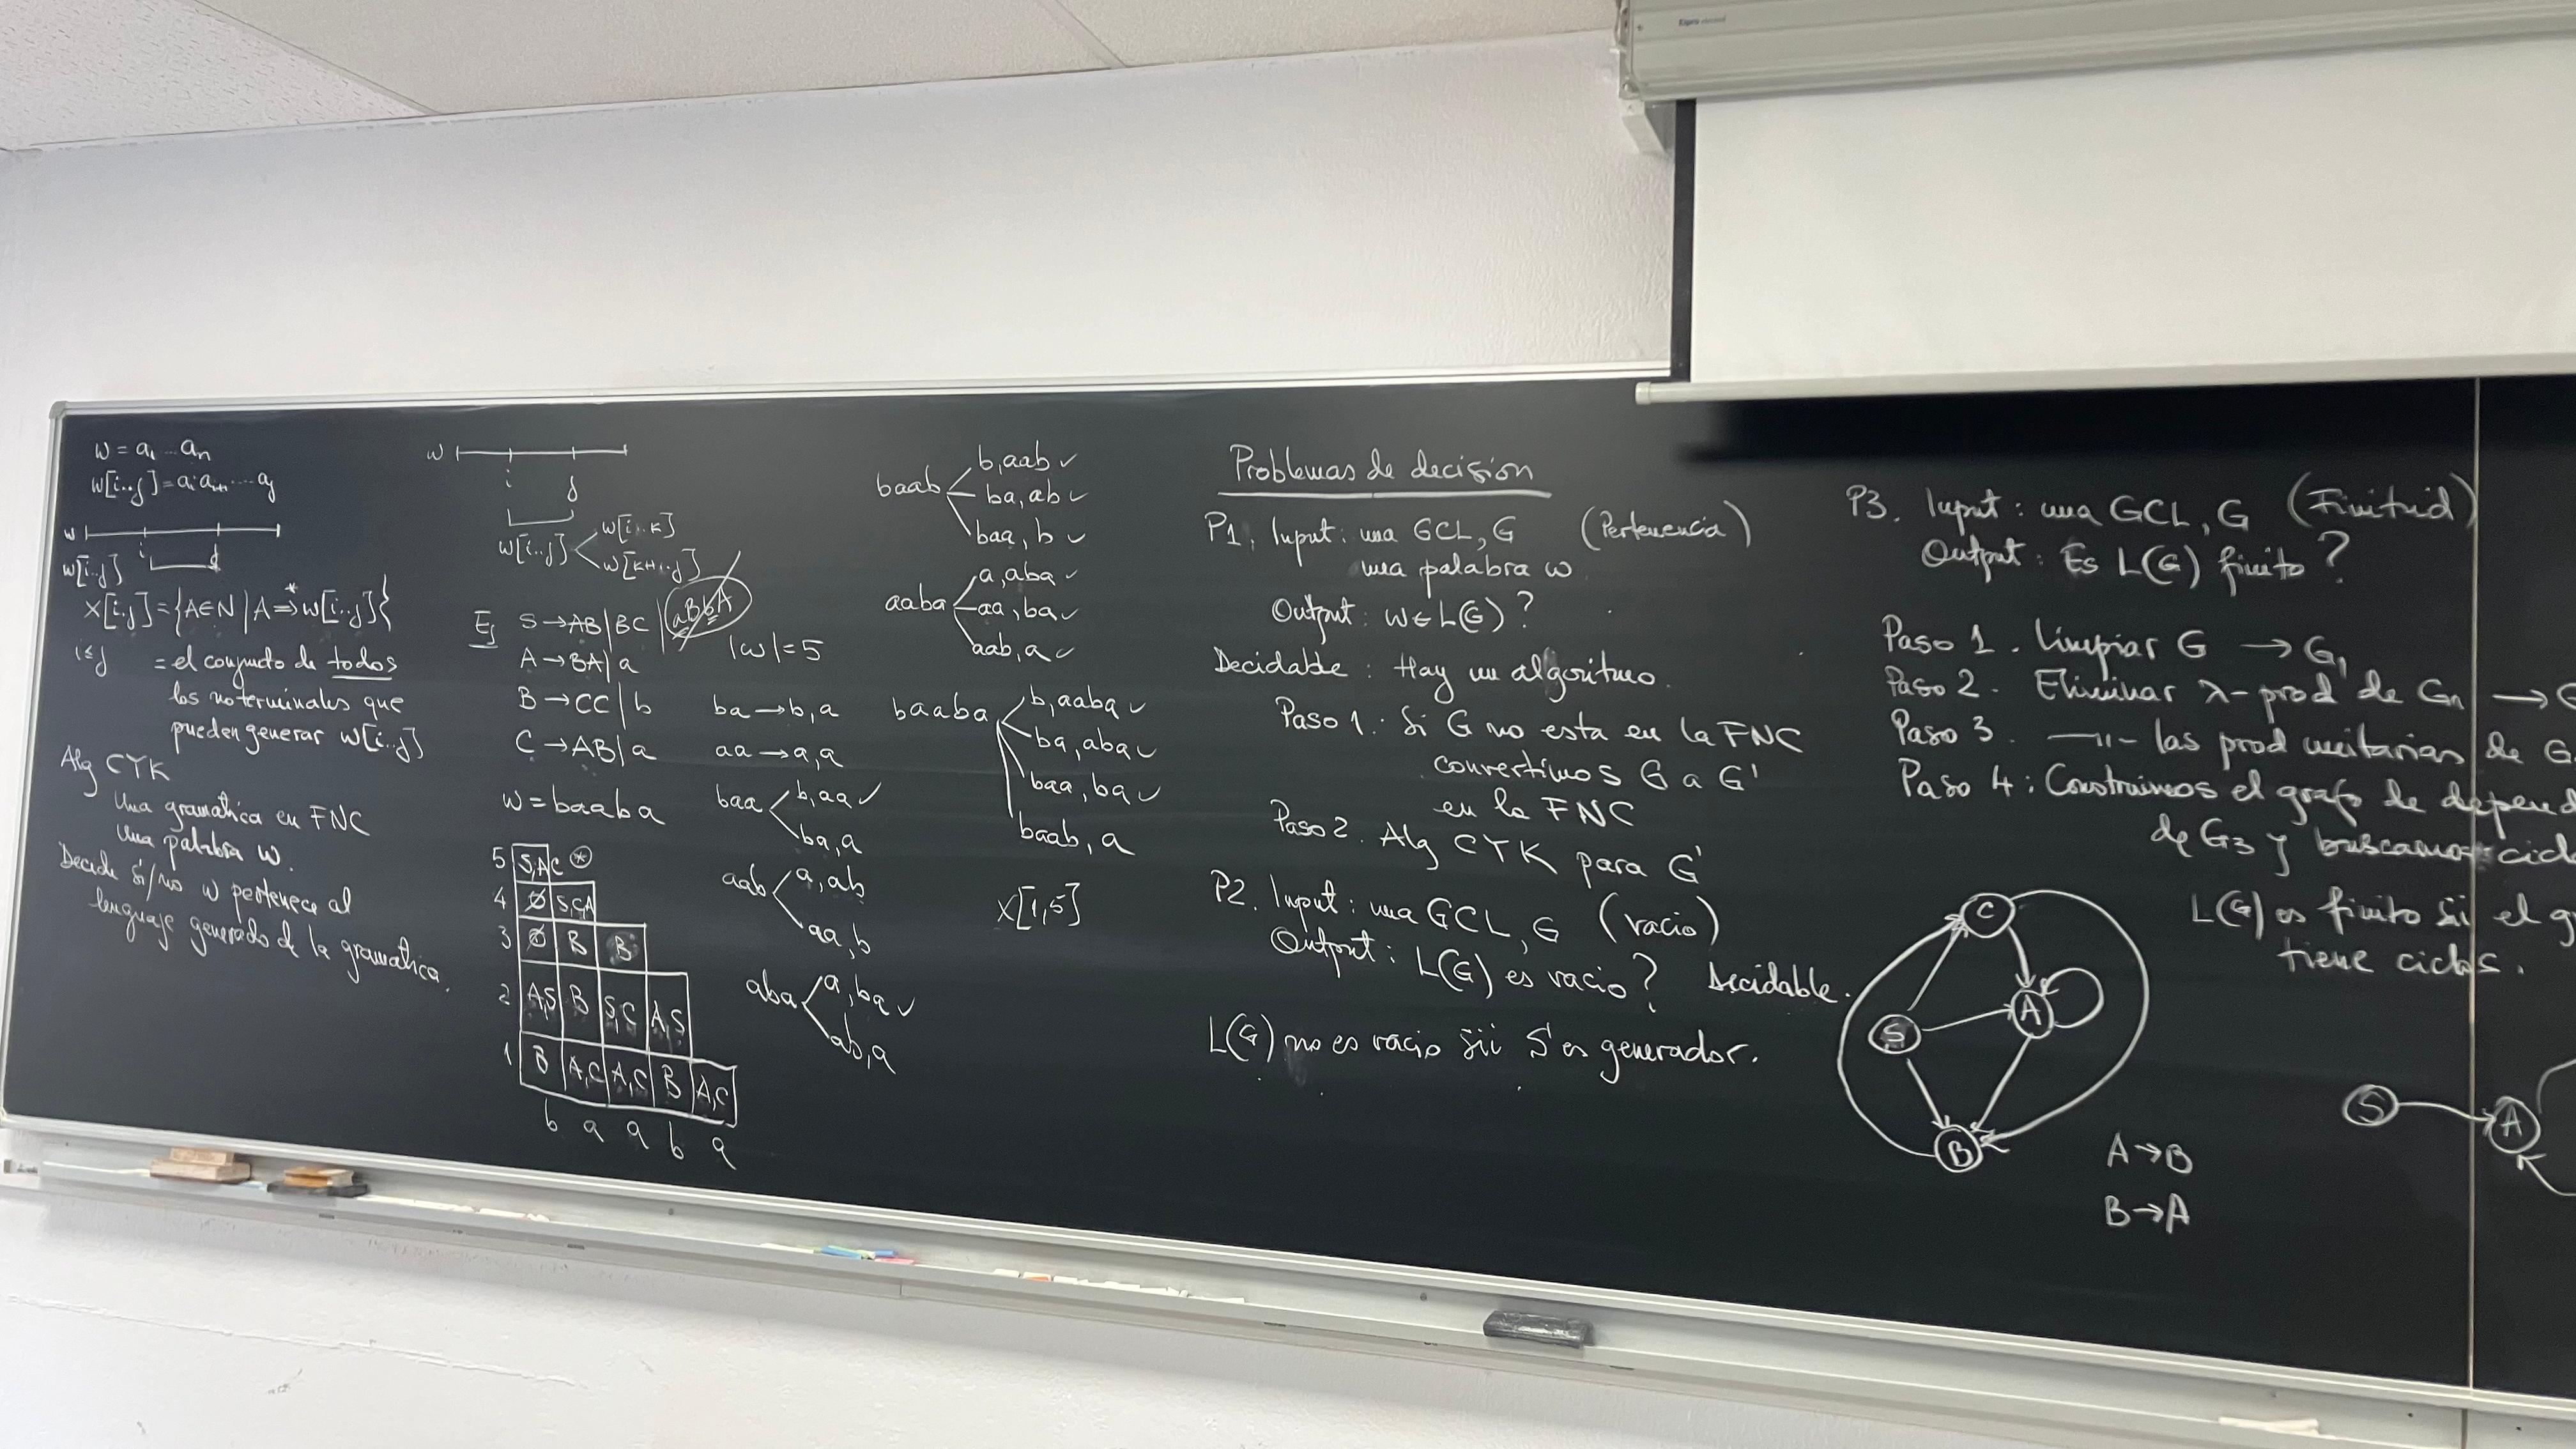 w = a₁ ... aₙ
w[i..j] = aᵢ aᵢ₊₁ ... aⱼ
w
i j
w[i..j]
X[i,j] = {A ∈ N | A ⇒* w[i..j]}
i ≤ j = el conjunto de todos
los no terminales que
pueden generar w[i..j]
Alg CYK
Una gramática en FNC
Una palabra w.
Decide si/no w pertenece al
lenguaje generado de la gramatica.
w
i j
w[i..j] w[i..k]
w[k+1..j]
Ej S → AB | BC | aBbA
A → BA | a
B → CC | b
C → AB | a
w = baaba
|w| = 5
5 S,A,C *
4 Ø S,C,A
3 Ø B B
2 A,S B S,C A,S
1 B A,C A,C B A,C
b a a b a
ba → b, a
aa → a, a
baa b, aa ✓
ba, a
aab a, ab
aa, b
aba a, ba ✓
ab, a
baab b, aab ✓
ba, ab ✓
baa, b ✓
aaba a, aba ✓
aa, ba ✓
aab, a ✓
baaba b, aaba ✓
ba, aba ✓
baa, ba ✓
baab, a
X[1,5]
Problemas de decisión
P1. Input: una GCL, G (Pertenencia)
una palabra w
Output: w ∈ L(G) ?
Decidable: Hay un algoritmo.
Paso 1: Si G no esta en la FNC
convertimos G a G'
en la FNC
Paso 2. Alg CYK para G'
P2. Input: una GCL, G (vacio)
Output: L(G) es vacio? Decidable.
L(G) no es vacio sii S es generador.
P3. Input: una GCL, G (Finitud)
Output: Es L(G) finito?
Paso 1. Limpiar G → G₁
Paso 2. Eliminar λ-prod de G₁ →
Paso 3. —"— las prod unitarias de G
Paso 4: Construimos el grafo de depend
de G₃ y buscamos cicl
L(G) es finito sii el g
tiene ciclos.
C
A
S
B
A → B
B → A
S A